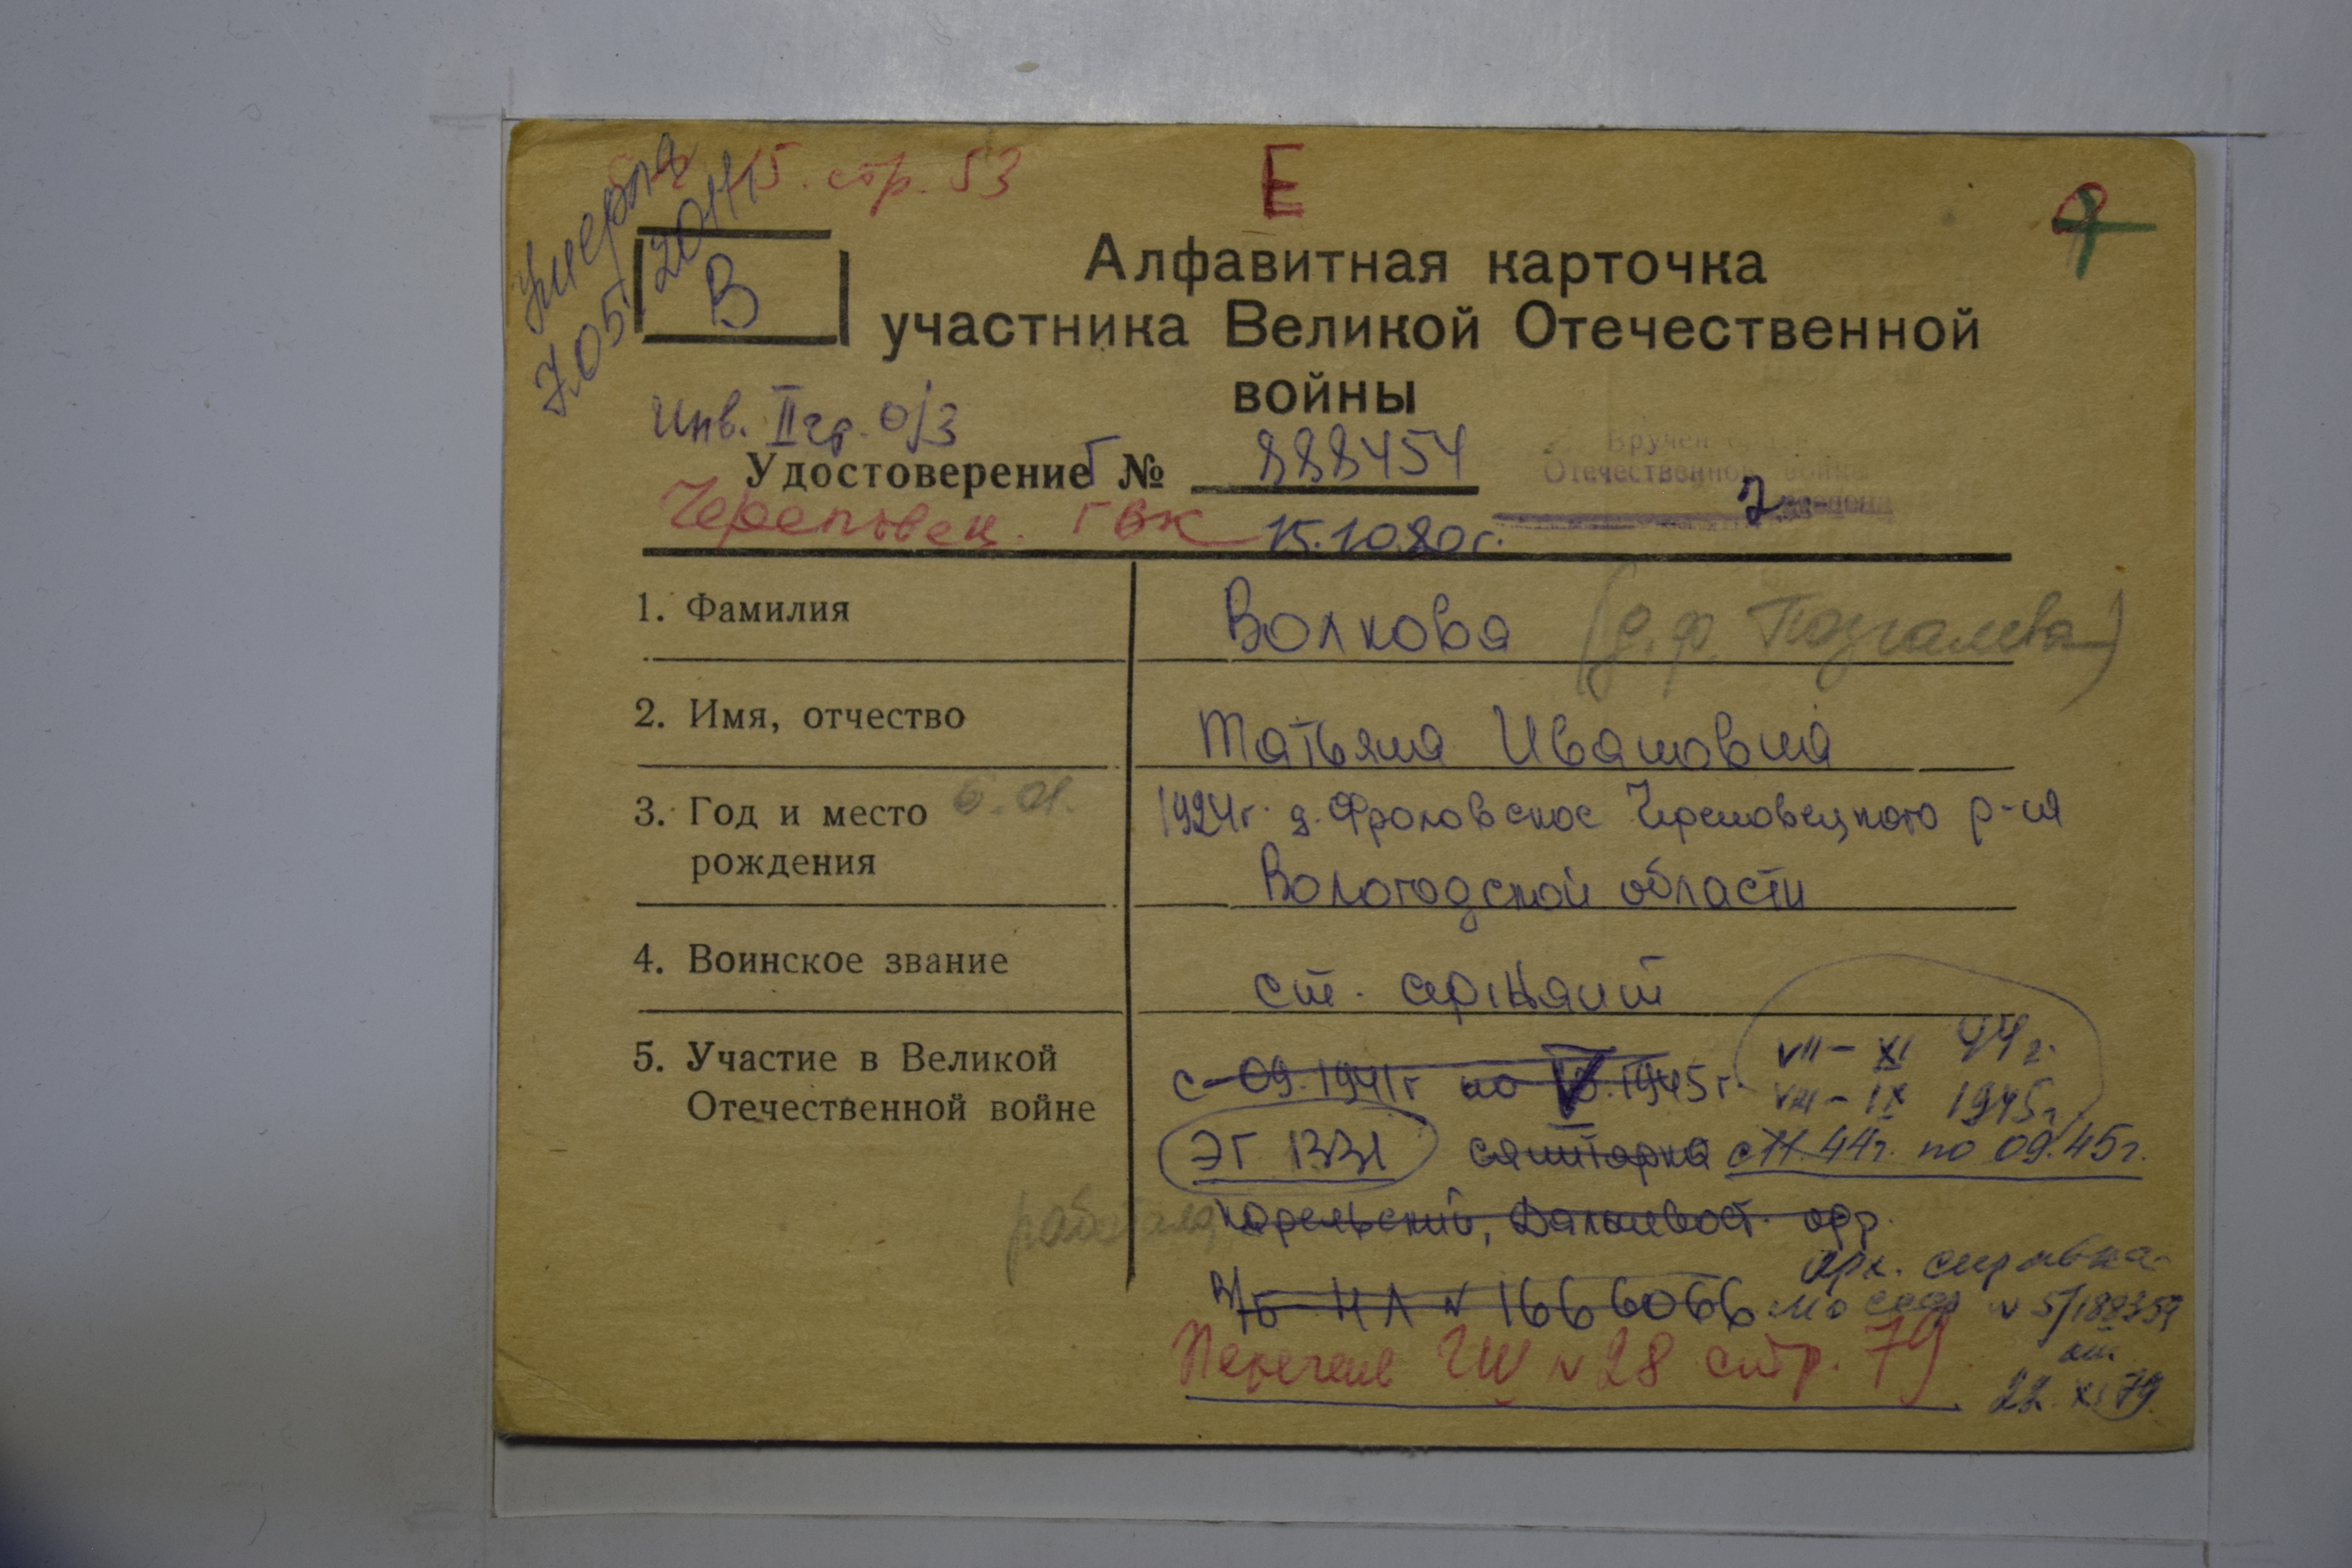 Умерла
7.05.2011
15. стр. 53
Е
В
Алфавитная карточка
участника Великой Отечественной
войны
Инв. II гр. о/з
Удостоверение Г № 888454
Вручен
Отечественной войны
2
Череповец. ГВК 15.10.80г.
1. Фамилия Волкова (д.ф. Позгалева)
2. Имя, отчество Татьяна Ивановна
3. Год и место 6.01. 1924г. д. Фроловское Череповецкого р-на
рождения Вологодской области
4. Воинское звание ст. сержант
5. Участие в Великой с 09.1941г по V.1945г. VII - XI 44г.
Отечественной войне VIII - IX 1945г.
ЭГ 1331 санитарка с 11.44г. по 09.45г.
работала Карельский, Дальневост. фр.
в/б НЛ № 1666066 Арх. справка
МО СССР № 5/188359
от
22.XI.79
Перечень ГШ № 28 стр. 79